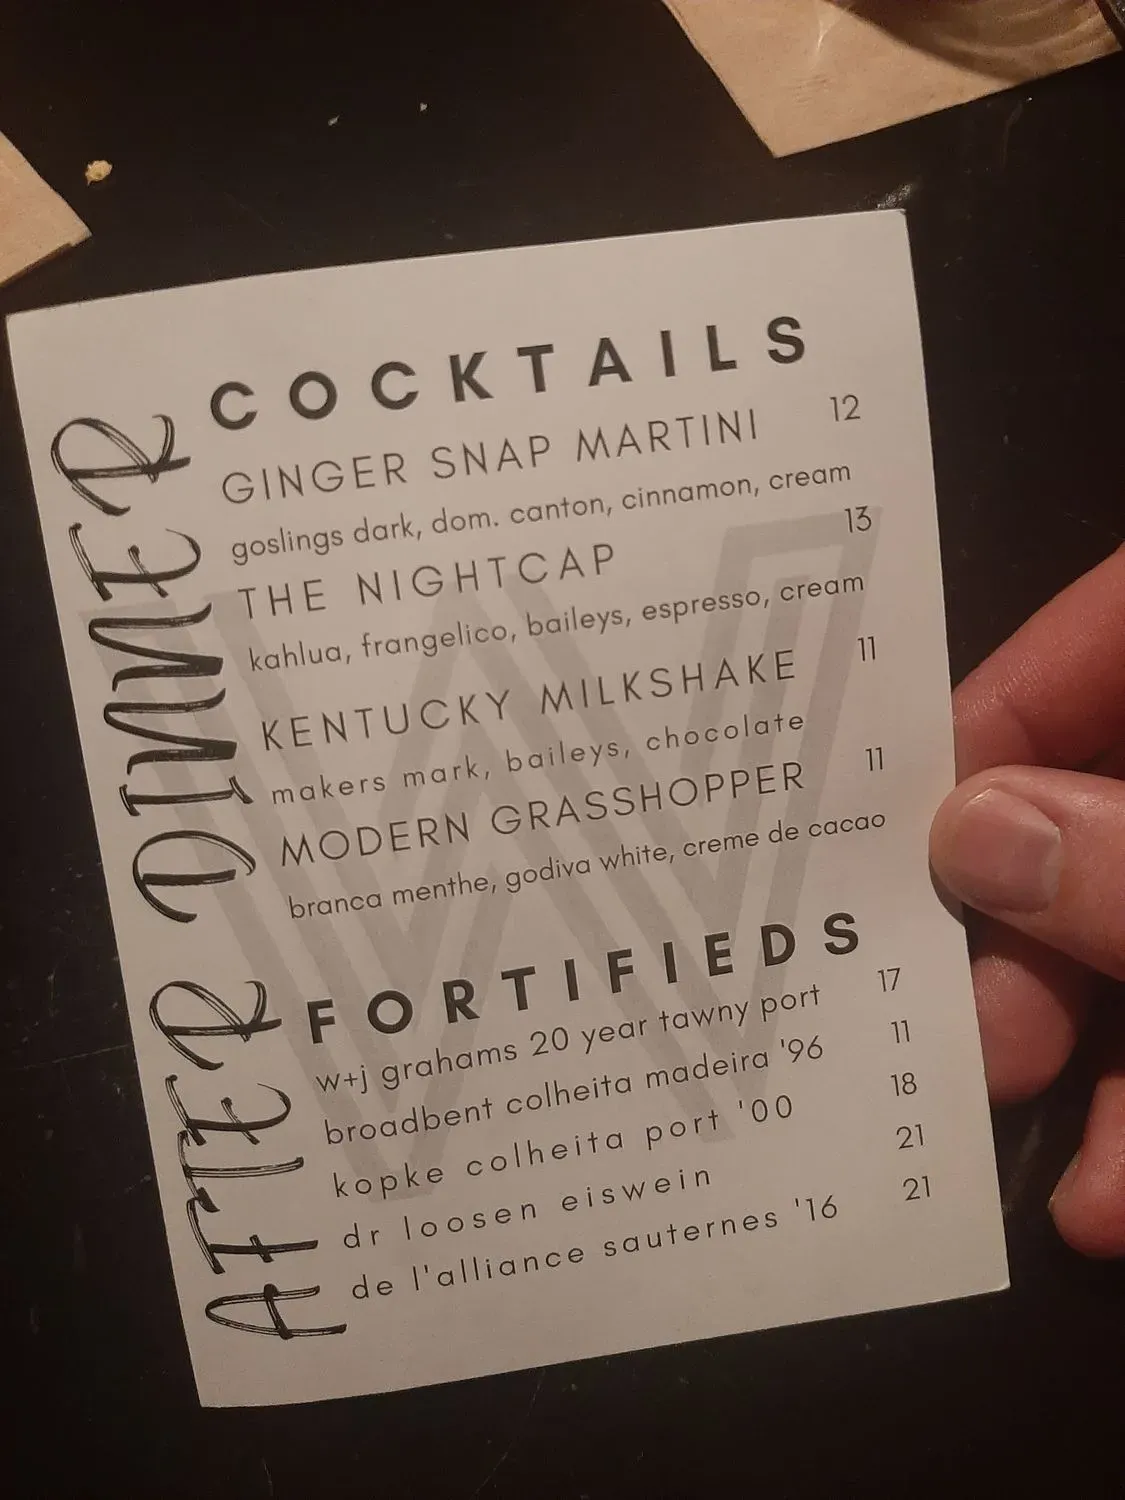 AFTER DINNER
COCKTAILS
GINGER SNAP MARTINI 12
goslings dark, dom. canton, cinnamon, cream
THE NIGHTCAP 13
kahlua, frangelico, baileys, espresso, cream
KENTUCKY MILKSHAKE 11
makers mark, baileys, chocolate
MODERN GRASSHOPPER 11
branca menthe, godiva white, creme de cacao
FORTIFIEDS
w+j grahams 20 year tawny port 17
broadbent colheita madeira '96 11
kopke colheita port '00 18
dr loosen eiswein 21
de l'alliance sauternes '16 21